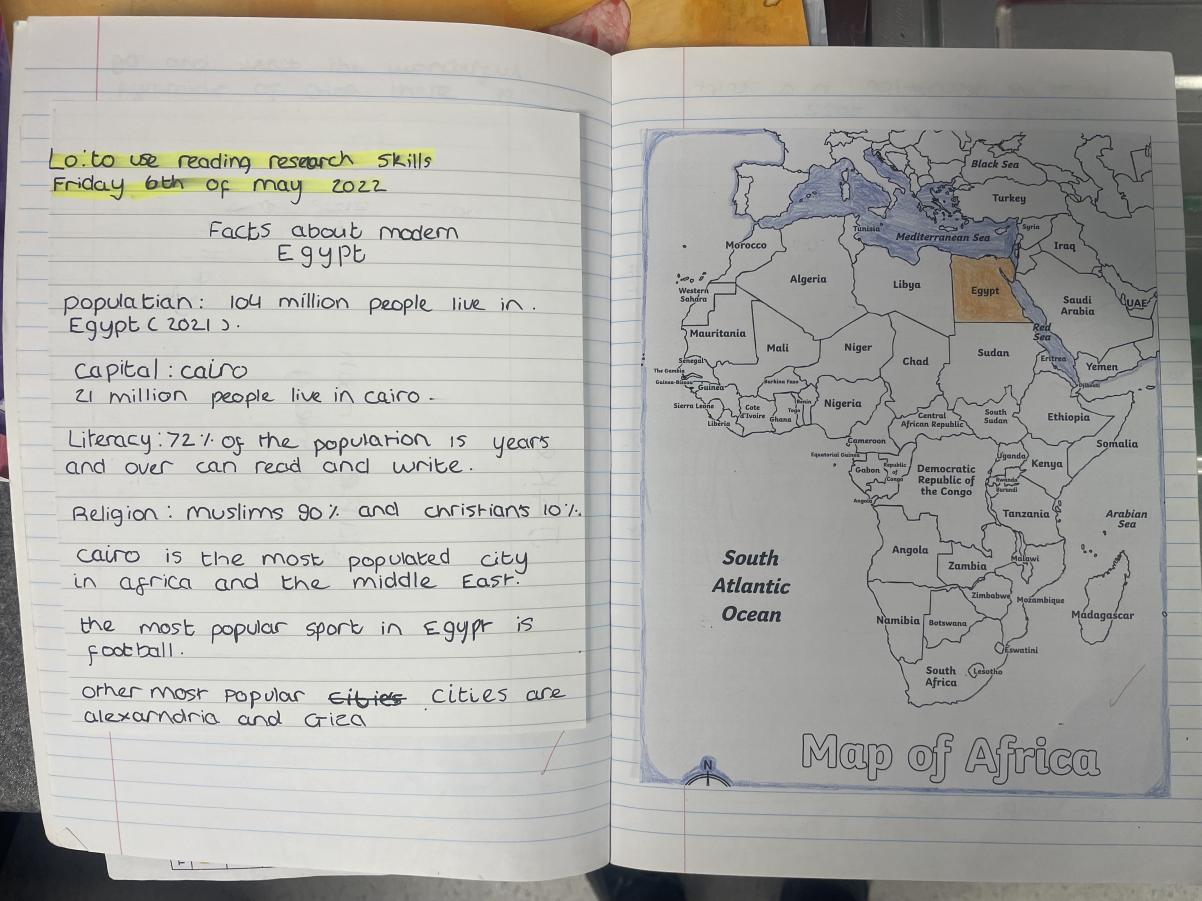 Lo: to use reading research skills
Friday 6th of may 2022
Facts about modern
Egypt
population: 104 million people live in.
Egypt (2021).
capital: cairo
21 million people live in cairo.
Literacy: 72% of the population is years
and over can read and write.
Religion: muslims 90% and christians 10%.
cairo is the most populated city
in africa and the middle East.
the most popular sport in Egypt is
football.
other most popular cities cities are
alexamdria and Giza
Black Sea
Turkey
Tunisia
Mediterranean Sea
Syria
Morocco
Iraq
Algeria
Libya
Egypt
Western
Sahara
Saudi
Arabia
UAE
Mauritania
Red
Sea
Mali
Niger
Chad
Sudan
Eritrea
Yemen
Senegal
The Gambia
Guinea-Bissau
Guinea
Burkina Faso
Djibouti
Benin
Togo
Sierra Leone
Cote
d'Ivoire
Ghana
Nigeria
Liberia
Central
African Republic
South
Sudan
Ethiopia
Cameroon
Somalia
Equatorial Guinea
Uganda
Gabon
Republic
of
Congo
Democratic
Republic of
the Congo
Kenya
Rwanda
Burundi
Angola
Tanzania
Arabian
Sea
South
Atlantic
Ocean
Angola
Zambia
Malawi
Zimbabwe
Mozambique
Madagascar
Namibia
Botswana
Eswatini
South
Africa
Lesotho
Map of Africa
N